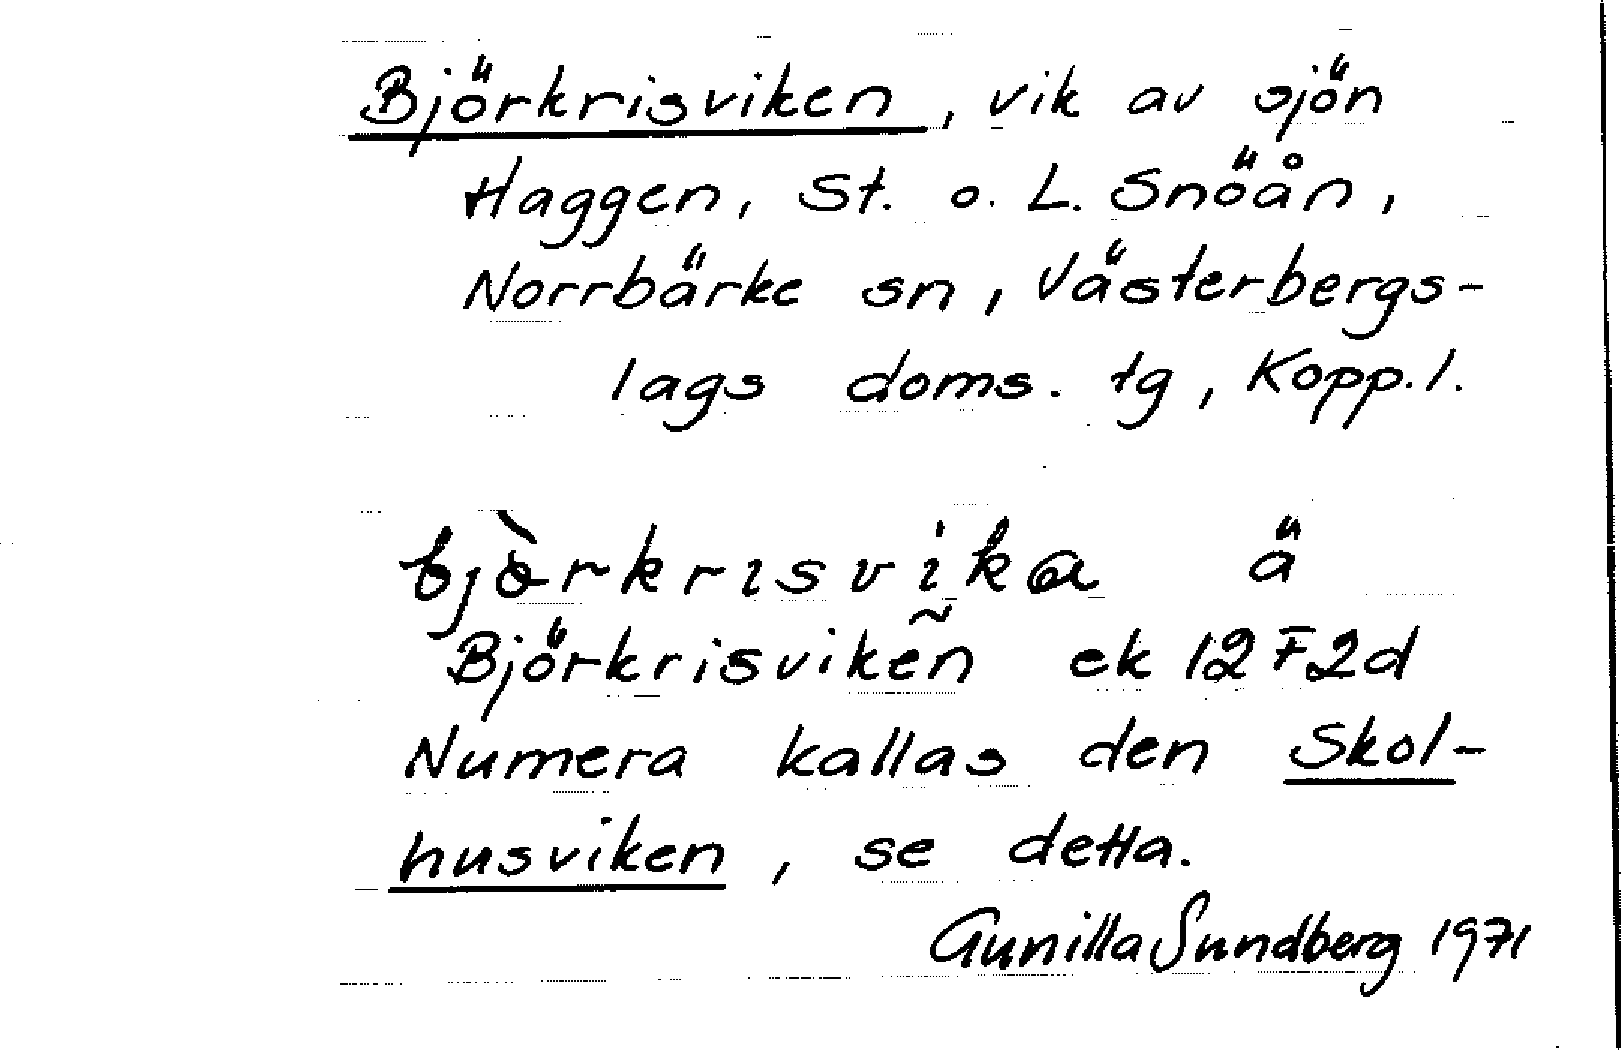 Björkrisviken, vik av sjön
Haggen, St. o. L. Snöån,
Norrbärke sn, Västerbergs-
lags doms. tg, Kopp. l.
bjɵ̀rkrɩsvika ä
Björkrisviken ek 12F2d
Numera kallas den Skol-
husviken, se detta.
Gunilla Sundberg 1971